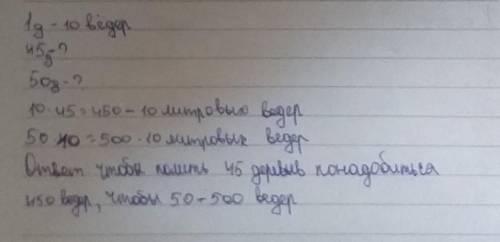 1д - 10 вёдер
45д-?
50д-?
10·45=450-10 литровых ведер
50·10=500·10 литровых ведер
Ответ чтобы полить 45 деревьев понадобиться
450 ведер, чтобы 50-500 ведер